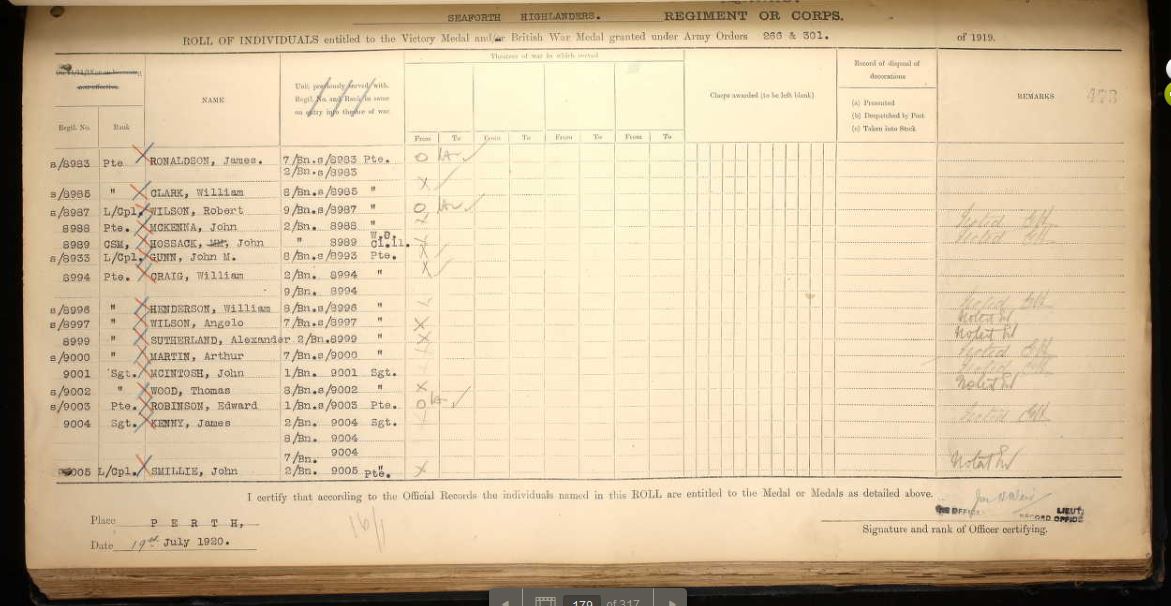 SEAFORTH HIGHLANDERS. REGIMENT OR CORPS.
ROLL OF INDIVIDUALS entitled to the Victory Medal and/or British War Medal granted under Army Orders 266 & 301. of 1919.
Theatres of war in which served
Record of disposal of decorations
Unit previously served with. Regtl. No. and Rank in same on entry into theatre of war
NAME
Clasps awarded (to be left blank)
REMARKS
(a) Presented
(b) Despatched by Post
(c) Taken into Stock
Regtl. No. Rank
From To From To From To From To
s/8983 Pte RONALDSON, James. 7/Bn.s/8983 Pte.
2/Bn.s/8983
s/8985 " CLARK, William 8/Bn.s/8985 "
s/8987 L/Cpl. WILSON, Robert 9/Bn.s/8987 "
8988 Pte. MCKENNA, John 2/Bn. 8988 "
8989 CSM, HOSSACK, John " 8989 W.O. Cl.ll.
s/8933 L/Cpl. GUNN, John M. 8/Bn.s/8993 Pte.
8994 Pte. CRAIG, William 2/Bn. 8994 "
9/Bn. 8994
s/8996 " HENDERSON, William 8/Bn.s/8996 "
s/8997 " WILSON, Angelo 7/Bn.s/8997 "
8999 " SUTHERLAND, Alexander 2/Bn.8999 "
s/9000 " MARTIN, Arthur 7/Bn.s/9000 "
9001 Sgt. MCINTOSH, John 1/Bn. 9001 Sgt.
s/9002 " WOOD, Thomas 8/Bn.s/9002 "
s/9003 Pte. ROBINSON, Edward 1/Bn.s/9003 Pte.
9004 Sgt. KENNY, James 2/Bn. 9004 Sgt.
8/Bn. 9004
7/Bn. 9004
9005 L/Cpl. SMILLIE, John 2/Bn. 9005 " Pte.
I certify that according to the Official Records the individuals named in this ROLL are entitled to the Medal or Medals as detailed above.
Place PERTH,
LIEUT,
RECORD OFFICE
Signature and rank of Officer certifying.
Date 19th July 1920.
179 of 317